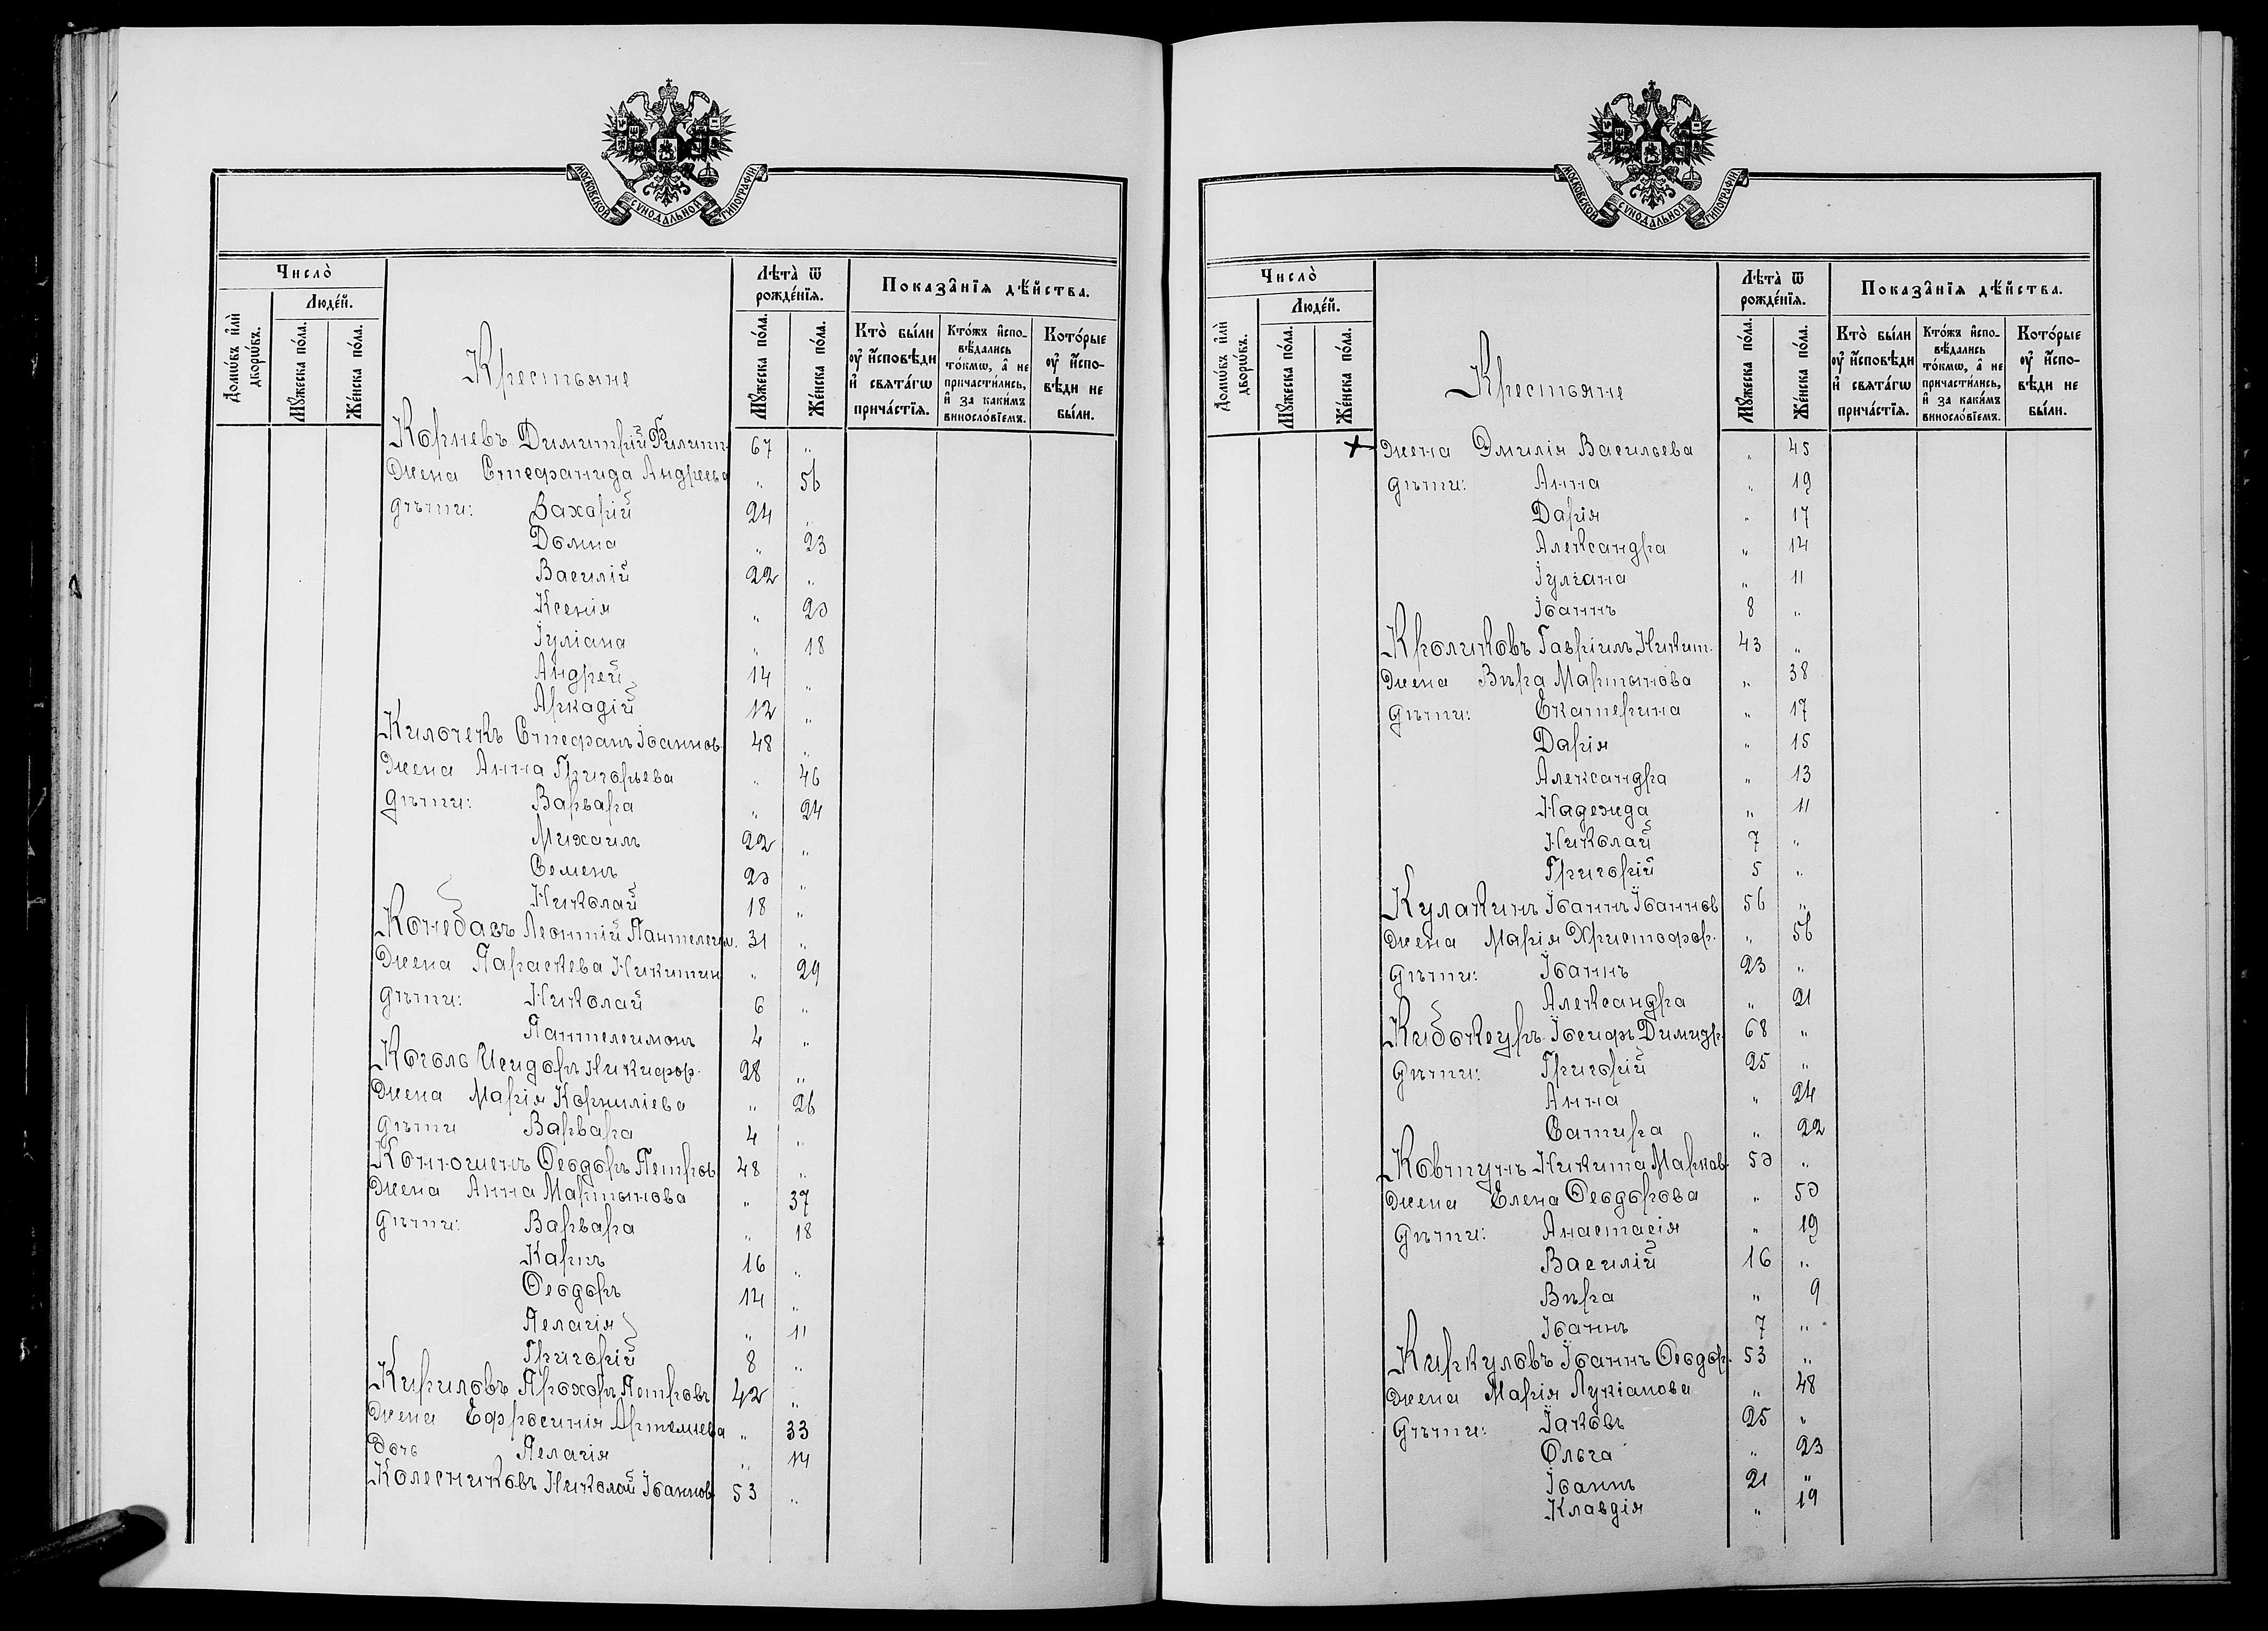 МОСКОВСКОЙ СУНОДАЛЬНОЙ ТИПОГРАФІИ
Число̀
Людей.
Домѡвъ и҆лѝ дворѡвъ.
Мꙋ́жеска по́ла.
Же́нска по́ла.
Крестьяне
Лѣта̀ ѿ рожде́нїѧ.
Мꙋ́жеска по́ла.
Же́нска по́ла.
Показа̂нїѧ дѣ́йства.
Кто̀ бы́ли ᲂу҆ и҆́сповѣди и҆ свѧта́гѡ прича́стїѧ.
Кто́жъ и҆спо-вѣ́дались то́кмѡ, а҆ не причасти́лись, и҆ за каки́мъ винosло́вїемъ.
Кото́рые ᲂу҆ и҆́спо-вѣди не бы́ли.
Корневъ Димитрій Филипп. 67 „
Жена Стефанида Андреева „ 56
дѣти: Захарій 24 „
Домна „ 23
Василій 22 „
Ксенія „ 20
Іуліана „ 18
Андрей 14 „
Аркадій 12 „
Килочекъ Стефанъ Іоаннов. 48 „
Жена Анна Григорьева „ 46
дѣти: Варвара „ 24
Михаилъ 22 „
Семенъ 20 „
Николай 18 „
Леонтій Пантелеим. 31 „
Жена Параскева Никитин „ 29
дѣти: Николай 6 „
Пантелеимонъ 4 „
Коголь Исидоръ Никифор. 28 „
Жена Марія Корниліева „ 26
дѣти Варвара 4 „
Конюшенъ Ѳеодоръ Петров 48 „
Жена Анна Мартынова „ 37
дѣти: Варвара „ 18
Карпъ 16 „
Ѳеодоръ 14 „
Пелагія „ 11
Григорій 8 „
Кириловъ Прохоръ Петровъ 42 „
Жена Ефросинія Артемиева „ 33
Дочь Пелагія „ 14
Колесниковъ Николай Іоаннов. 53 „
МОСКОВСКОЙ СУНОДАЛЬНОЙ ТИПОГРАФІИ
Число̀
Людей.
Домѡвъ и҆лѝ дворѡвъ.
Мꙋ́жеска по́ла.
Же́нска по́ла.
Крестьяне
Лѣта̀ ѿ рожде́нїѧ.
Мꙋ́жеска по́ла.
Же́нска по́ла.
Показа̂нїѧ дѣ́йства.
Кто̀ бы́ли ᲂу҆ и҆́сповѣди и҆ свѧта́гѡ прича́стїѧ.
Кто́жъ и҆спо-вѣ́дались то́кмѡ, а҆ не причасти́лись, и҆ за каки́мъ винosло́вїемъ.
Кото́рые ᲂу҆ и҆́спо-вѣди не бы́ли.
Жена Эмилія Васильева „ 45
дѣти: Анна „ 19
Дарія „ 17
Александра „ 14
Іуліана „ 11
Іоаннъ 8 „
Кроликовъ Гавріилъ Никит. 43 „
Жена Вѣра Мартынова „ 38
дѣти: Екатерина „ 17
Дарія „ 15
Александра „ 13
Надежда „ 11
Николай 7 „
Григорій 5 „
Кулакинъ Іоаннъ Іоаннов 56 „
Жена Марія Христофор. „ 56
дѣти: Іоаннъ 23 „
Александра „ 21
Іосифъ Димидр. 68 „
дѣти: Григорій 25 „
Анна „ 24
Сатира „ 22
Ковтунъ Никита Марков. 50 „
Жена Елена Ѳеодорова „ 50
дѣти: Анастасія „ 19
Василій 16 „
Вѣра „ 9
Іоаннъ 7 „
Киркуловъ Іоаннъ Ѳеодор. 53 „
Жена Марія Лукіанова „ 48
дѣти: Іаковъ 25 „
Ольга „ 23
Іоаннъ 21 „
Клавдія „ 19